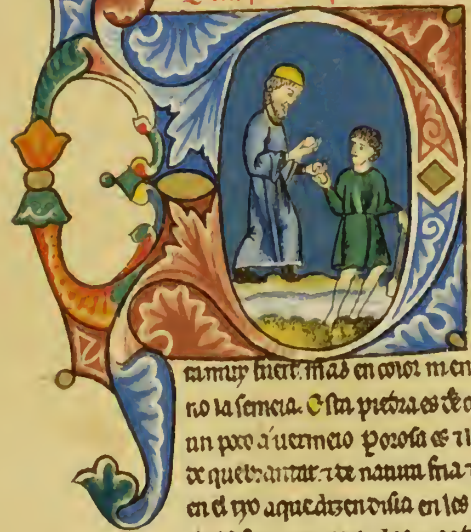 ra muy fuert. mas en color m en
no la semeia. Esta piedra es de c
un poco a uermeio Porosa es ⁊ l
de quebrantar. ⁊ de natura fria ⁊
en el ryo aque dizen disia en les